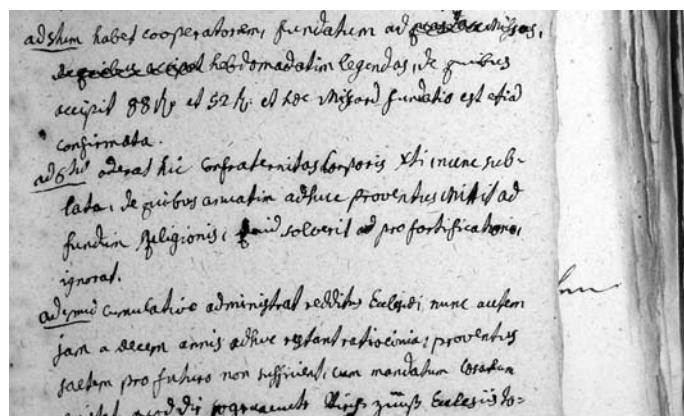 ad 5tum habet cooperatorem, fundatum ad Missas,
hebdomadatim legendas, de quibus
accipit 88 et 52 et hoc Missarū fundatio est etiā
confirmata.
ad 6tū aderat hic Confraternitas Corporis Xti, nunc sub-
lata, de quibus annatim adhuc proventus Mittit ad
fundum Religionis, quid solverit ad pro fortificatione,
ignorat.
cumulative administrat redditus Eccles, nunc autem
jam a decem annis adhuc restant ratiocinia, proventus
saltem pro futuro non sufficient, cum mandatum
quod die Eclesiis to-